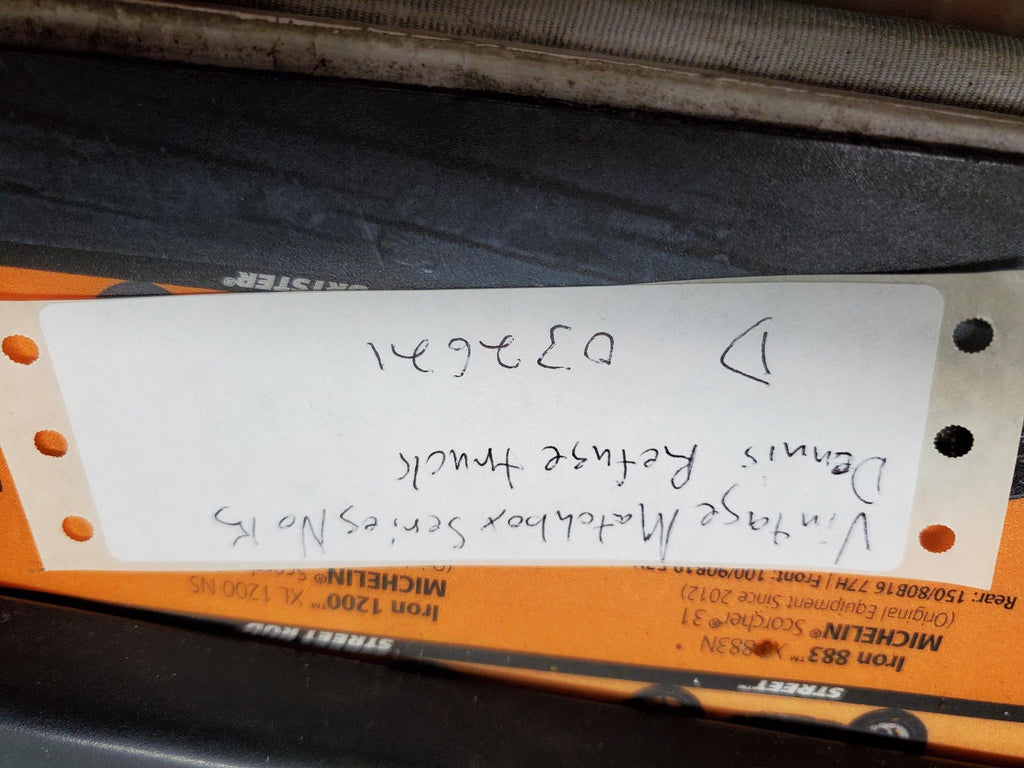 STREET
Iron 883™ XL883N
MICHELIN® Scorcher® 31
(Original Equipment Since 2012)
Rear: 150/80B16 77H | Front: 100/90B19
STREET ROD
Iron 1200™ XL 1200 NS
MICHELIN®
Vintage Matchbox Series No 15
Dennis Refuse truck
D 032621